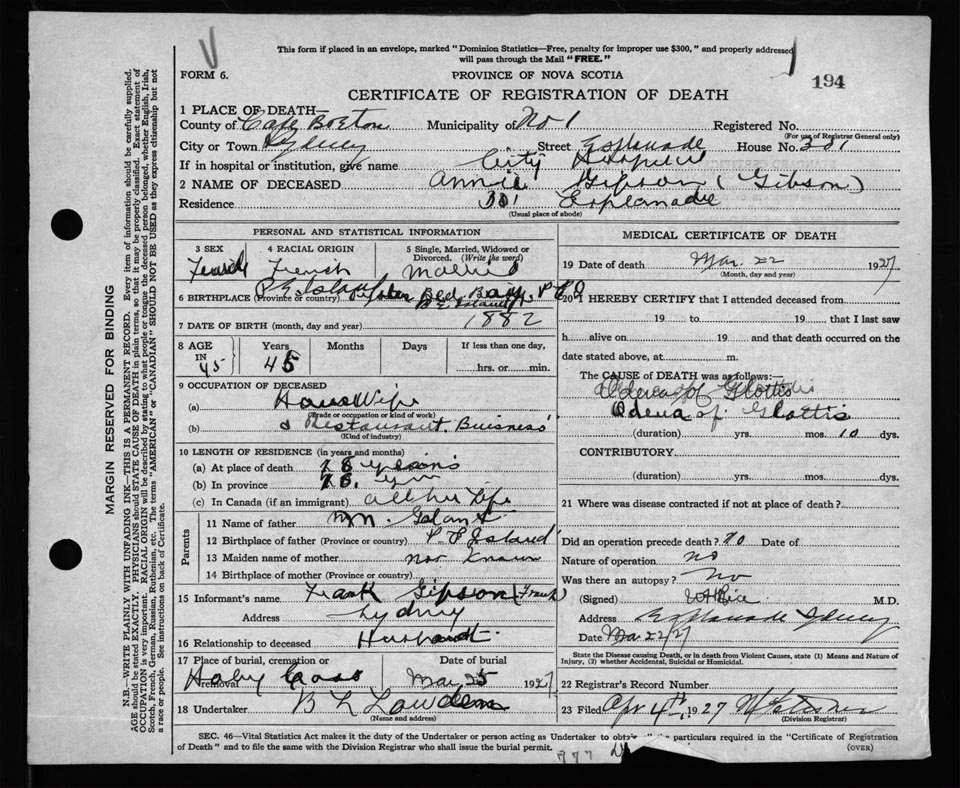 This form if placed in an envelope, marked "Dominion Statistics—Free, penalty for improper use $300," and properly addressed
will pass through the Mail "FREE."
FORM 6.
PROVINCE OF NOVA SCOTIA
194
CERTIFICATE OF REGISTRATION OF DEATH
1 PLACE OF DEATH—
County of Cape Breton Municipality of No 1 Registered No.
(For use of Registrar General only)
City or Town Sydney Street Esplanade House No. 381
If in hospital or institution, give name City Hospital
2 NAME OF DECEASED Annie Gipson (Gibson)
Residence Esplanade
(Usual place of abode)
PERSONAL AND STATISTICAL INFORMATION
3 SEX 4 RACIAL ORIGIN 5 Single, Married, Widowed or Divorced. (Write the word)
Female French Married
6 BIRTHPLACE (Province or country) P E Island Bay, P E I
7 DATE OF BIRTH (month, day and year) 1882
8 AGE IN 45 Years Months Days If less than one day,
45 hrs. or min.
9 OCCUPATION OF DECEASED
(a) House Wife
(Trade or occupation or kind of work)
(b) & Restaurant Buisness
(Kind of industry)
10 LENGTH OF RESIDENCE (in years and months)
(a) At place of death 18 years
(b) In province 18
(c) In Canada (if an immigrant) all her Life
Parents
11 Name of father
12 Birthplace of father (Province or country) P E Island
13 Maiden name of mother not known
14 Birthplace of mother (Province or country)
15 Informant's name Frank Gipson (Frank)
Address Sydney
16 Relationship to deceased Husbandt
17 Place of burial, cremation or removal Date of burial
Holy Cross Mar 25 1927
18 Undertaker B L Lowdens
(Name and address)
MEDICAL CERTIFICATE OF DEATH
19 Date of death Mar. 22 1927
(Month, day and year)
20 I HEREBY CERTIFY that I attended deceased from
19 to 19 that I last saw
h alive on 19 and that death occurred on the
date stated above, at m.
The CAUSE of DEATH was as follows:—
Odema of Glottis
Odema of Glottis
(duration) yrs. mos. 10 dys.
CONTRIBUTORY
(duration) yrs. mos. dys.
21 Where was disease contracted if not at place of death?
Did an operation precede death? no Date of
Nature of operation no
Was there an autopsy? no
(Signed) M.D.
Address Esplanade Sydney
Date Mar 22/27
State the Disease causing Death, or in death from Violent Causes, state (1) Means and Nature of
Injury, (2) whether Accidental, Suicidal or Homicidal.
22 Registrar's Record Number
23 Filed Apr 4th 1927
(Division Registrar)
SEC. 46—Vital Statistics Act makes it the duty of the Undertaker or person acting as Undertaker to particulars required in the "Certificate of Registration
of Death" and to file the same with the Division Registrar who shall issue the burial permit.
(OVER)
977
MARGIN RESERVED FOR BINDING
N.B.—WRITE PLAINLY WITH UNFADING INK—THIS IS A PERMANENT RECORD. Every item of information should be carefully supplied.
AGE should be stated EXACTLY. PHYSICIANS should STATE CAUSE OF DEATH in plain terms, so that it may be properly classified. Exact statement of
OCCUPATION is very important. RACIAL ORIGIN will be described by stating to what people or tongue the deceased person belonged, whether English, Irish,
Scotch, French, German, Russian, Ruthenian, etc. The terms "AMERICAN" or "CANADIAN" SHOULD NOT BE USED as they express citizenship but not
a race or people. See instructions on back of Certificate.